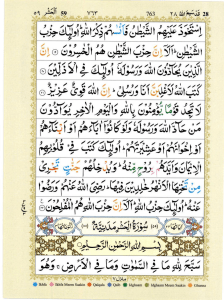 ٢٨ قد سمع الله ٧٦٣ 763 59 الحشر ٥٩ 28
اِسْتَحْوَذَ عَلَيْهِمُ الشَّيْطٰنُ فَاَنْسٰىهُمْ ذِكْرَ اللّٰهِ اُولٰٓئِكَ حِزْبُ
الشَّيْطٰنِ اَلَآ اِنَّ حِزْبَ الشَّيْطٰنِ هُمُ الْخٰسِرُوْنَ اِنَّ
الَّذِيْنَ يُحَآدُّوْنَ اللّٰهَ وَرَسُوْلَهٗٓ اُولٰٓئِكَ فِى الْاَذَلِّيْنَ
كَتَبَ اللّٰهُ لَاَغْلِبَنَّ اَنَا وَرُسُلِيْ اِنَّ اللّٰهَ قَوِيٌّ عَزِيْزٌ
لَا تَجِدُ قَوْمًا يُّؤْمِنُوْنَ بِاللّٰهِ وَالْيَوْمِ الْاٰخِرِ يُوَآدُّوْنَ
مَنْ حَآدَّ اللّٰهَ وَرَسُوْلَهٗ وَلَوْ كَانُوْٓا اٰبَآءَهُمْ اَوْ اَبْنَآءَهُمْ
اَوْ اِخْوَانَهُمْ اَوْ عَشِيْرَتَهُمْ اُولٰٓئِكَ كَتَبَ فِيْ قُلُوْبِهِمُ
الْاِيْمَانَ وَاَيَّدَهُمْ بِرُوْحٍ مِّنْهُ وَيُدْخِلُهُمْ جَنّٰتٍ تَجْرِيْ
مِنْ تَحْتِهَا الْاَنْهٰرُ خٰلِدِيْنَ فِيْهَا رَضِيَ اللّٰهُ عَنْهُمْ وَرَضُوْا
عَنْهُ اُولٰٓئِكَ حِزْبُ اللّٰهِ اَلَآ اِنَّ حِزْبَ اللّٰهِ هُمُ الْمُفْلِحُوْنَ
سُوْرَةُ الْحَشْرِ مَدَنِيَّةٌ
بِسْمِ اللّٰهِ الرَّحْمٰنِ الرَّحِيْمِ
سَبَّحَ لِلّٰهِ مَا فِى السَّمٰوٰتِ وَمَا فِى الْاَرْضِ وَهُوَ